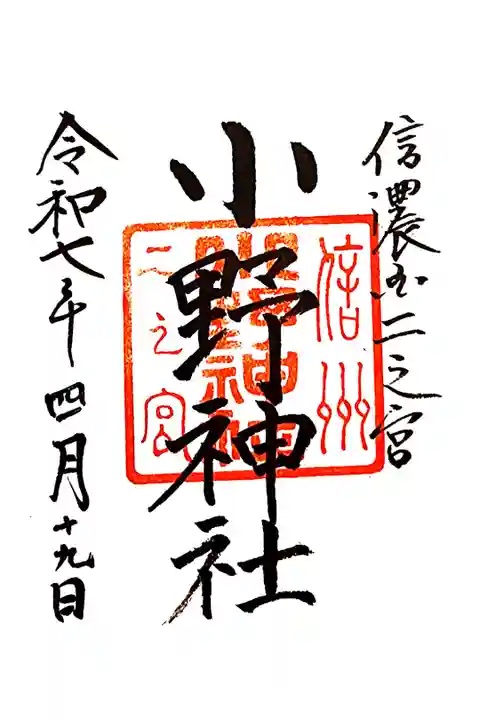 信濃国二之宮
小野神社
信州
小野神社
二之宮
令和七年四月十九日